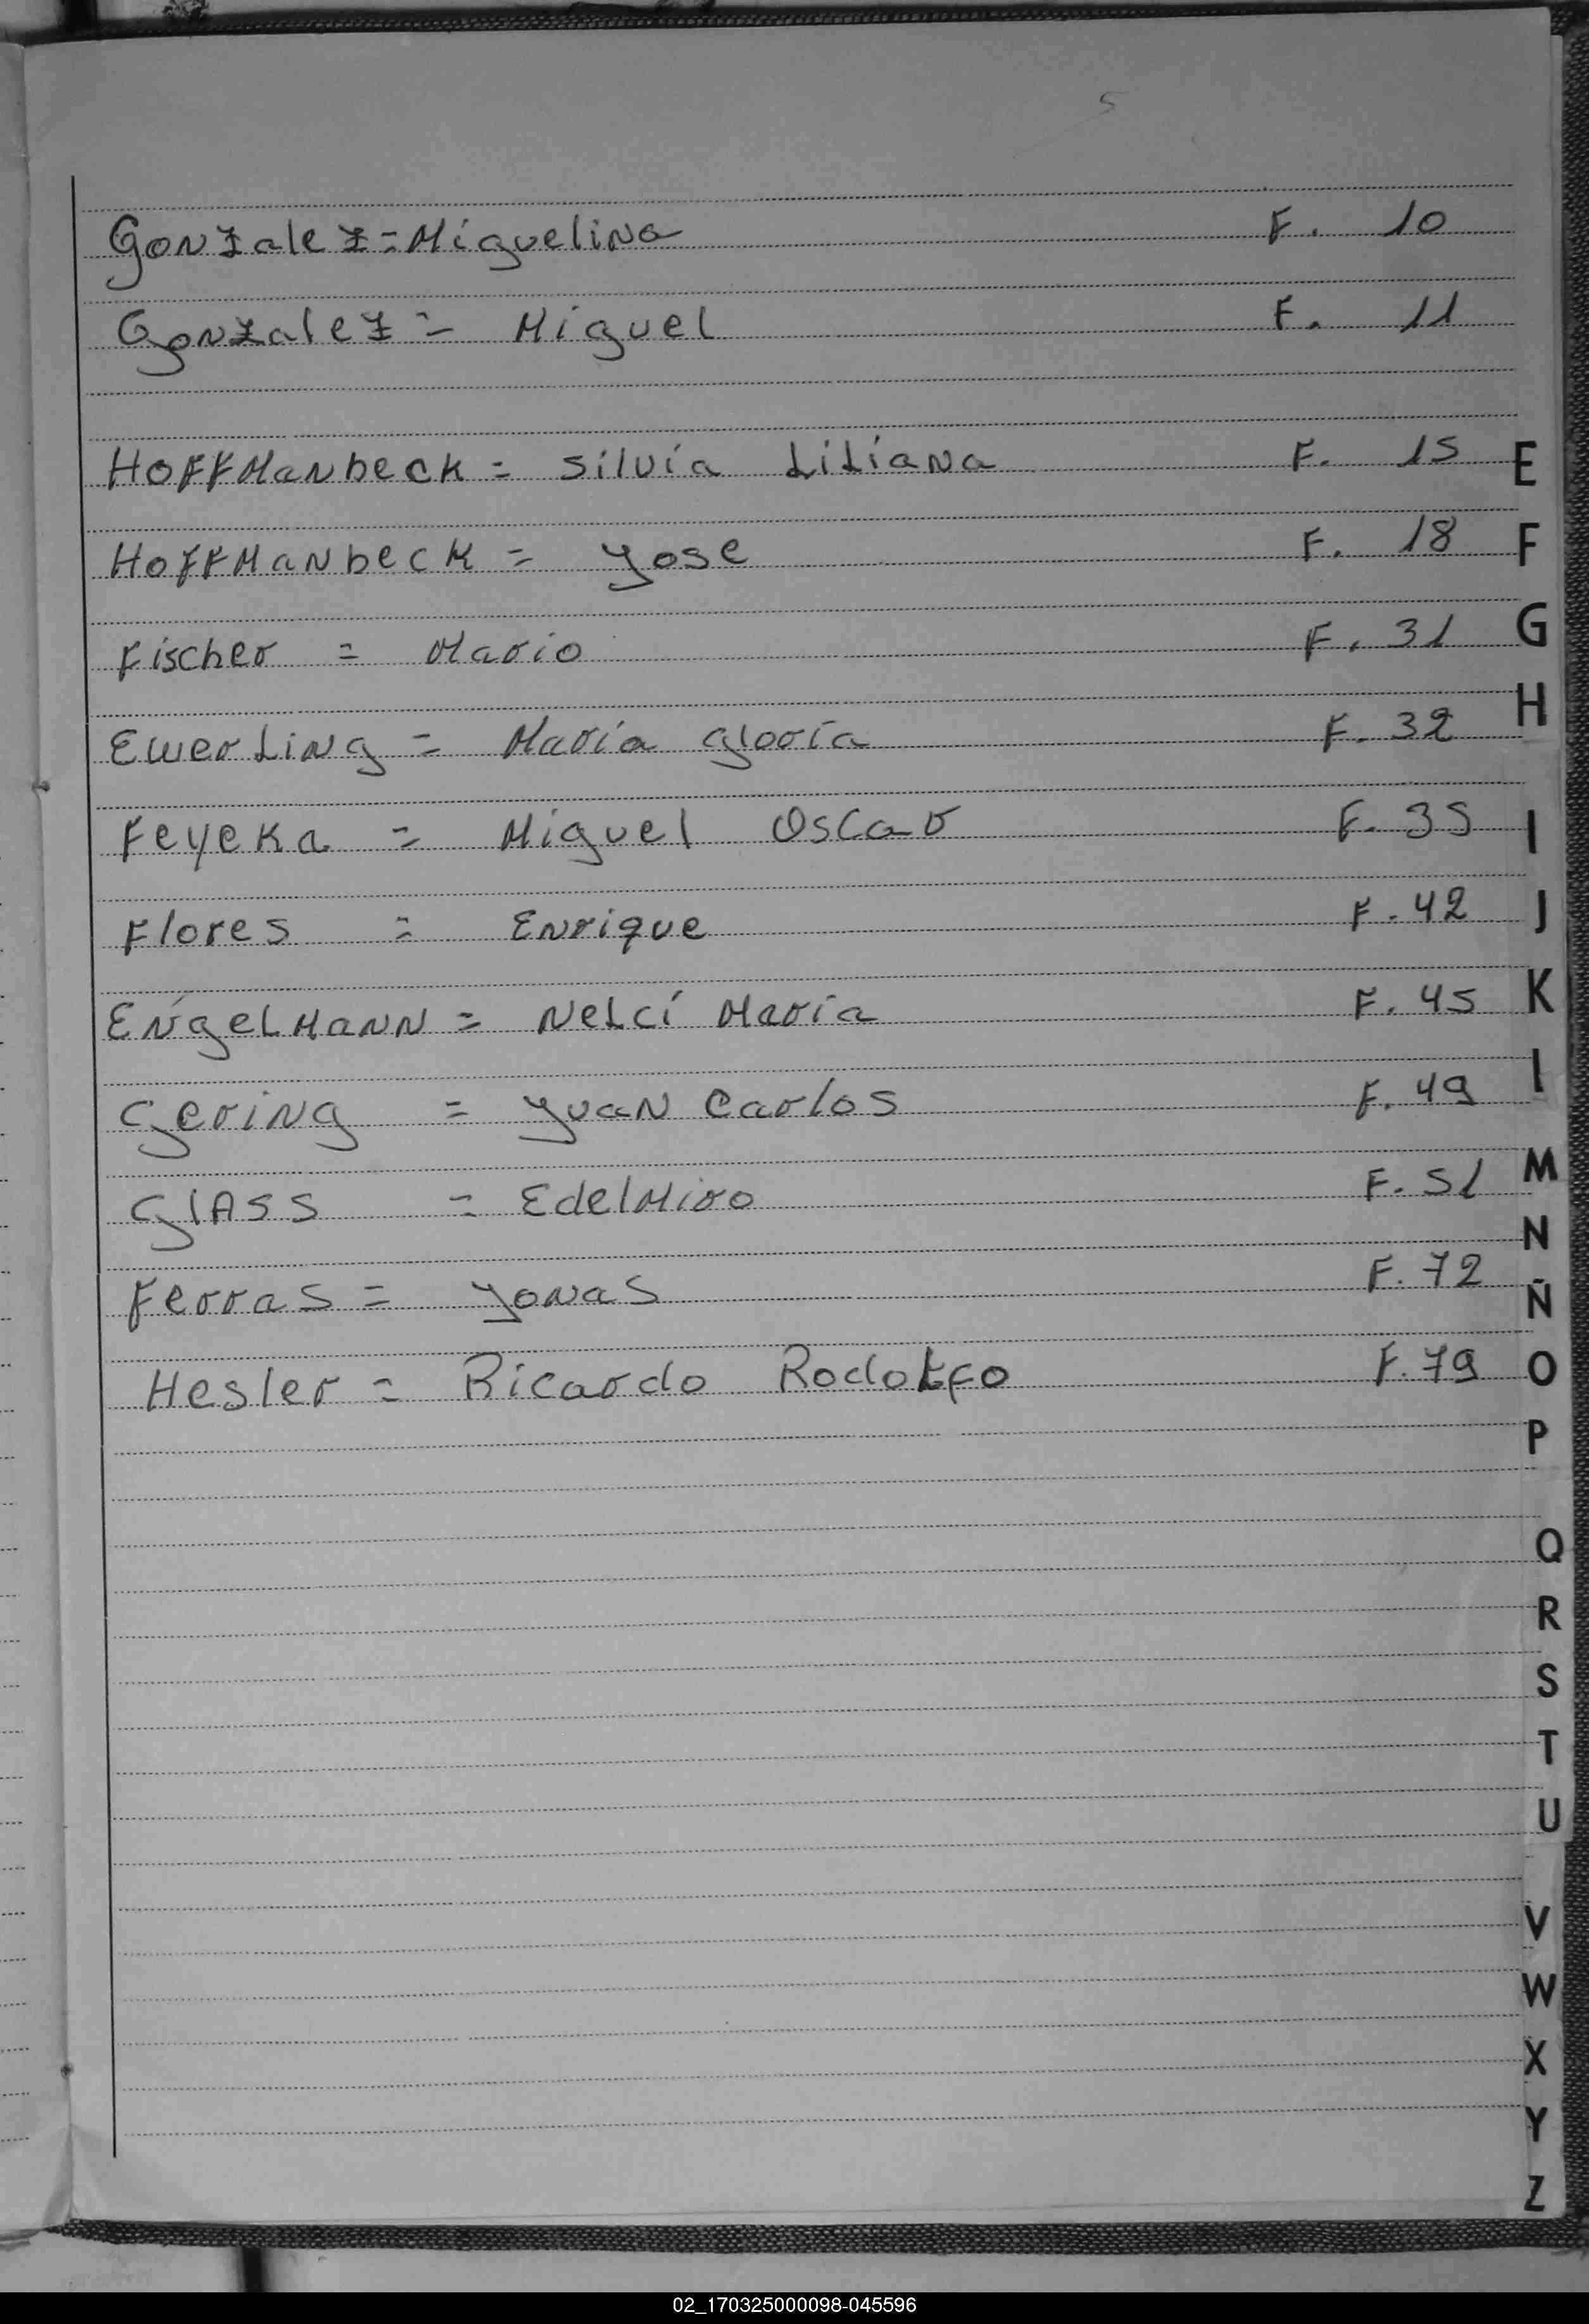 5
Gonzalez = Miguelina F. 10
Gonzalez = Miguel F. 11
HoffManbeck = Silvia Liliana F. 15
HoffManbeck = Yose F. 18
Fischer = Mario F. 31
Ewerling = Maria Gloria F. 32
Feyeka = Miguel Oscar F. 35
Flores = Enrique F. 42
Engelmann = Nelci Maria F. 45
Gering = Yuan Carlos F. 49
GlASS = Edelmiro F. 51
Ferras = Yonas F. 72
Hesler = Ricardo Rodolfo F. 79
E
F
G
H
I
J
K
l
M
N
Ñ
O
P
Q
R
S
T
U
V
W
X
Y
Z
02_170325000098-045596